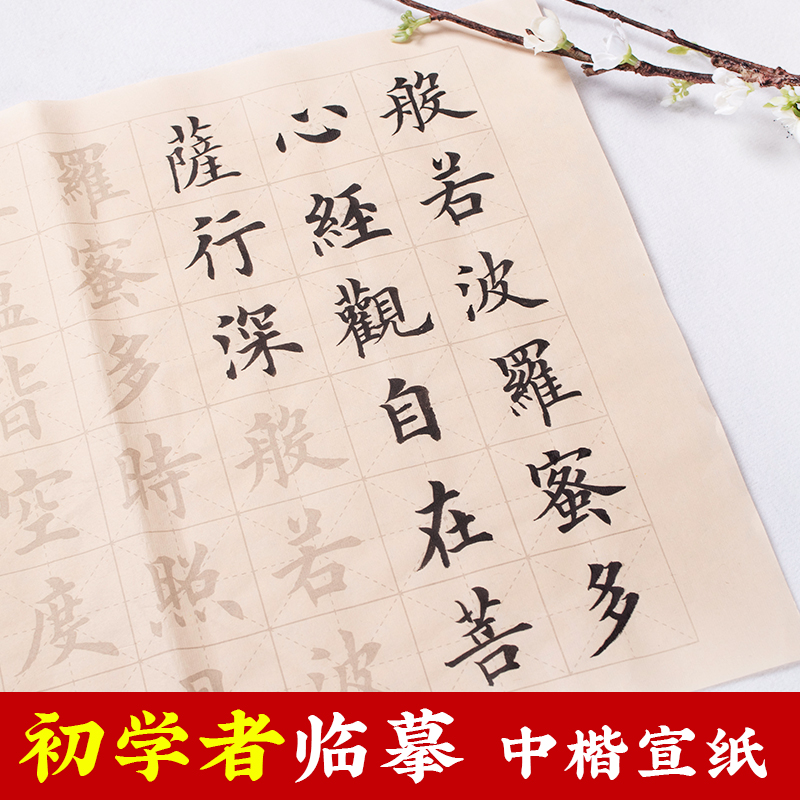 般若波羅蜜多
心經觀自在菩
薩行深般若波
羅蜜多時照
蘊皆空度
初学者临摹 中楷宣纸